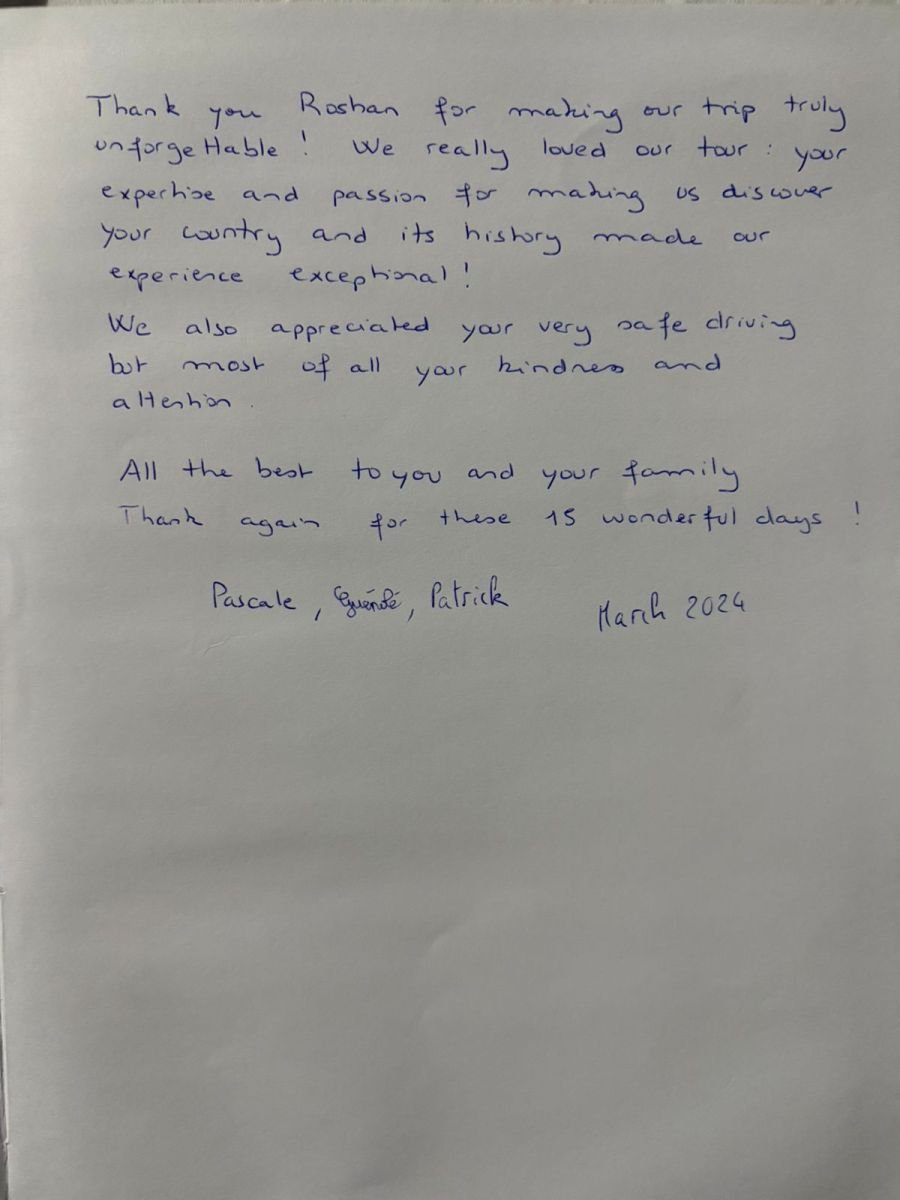 Thank you Roshan for making our trip truly
unforgettable ! We really loved our tour : your
expertise and passion for making us discover
your country and its history made our
experience exceptional !
We also appreciated your very safe driving
but most of all your kindness and
attention .
All the best to you and your family
Thank again for these 15 wonderful days !
Pascale , , Patrick March 2024